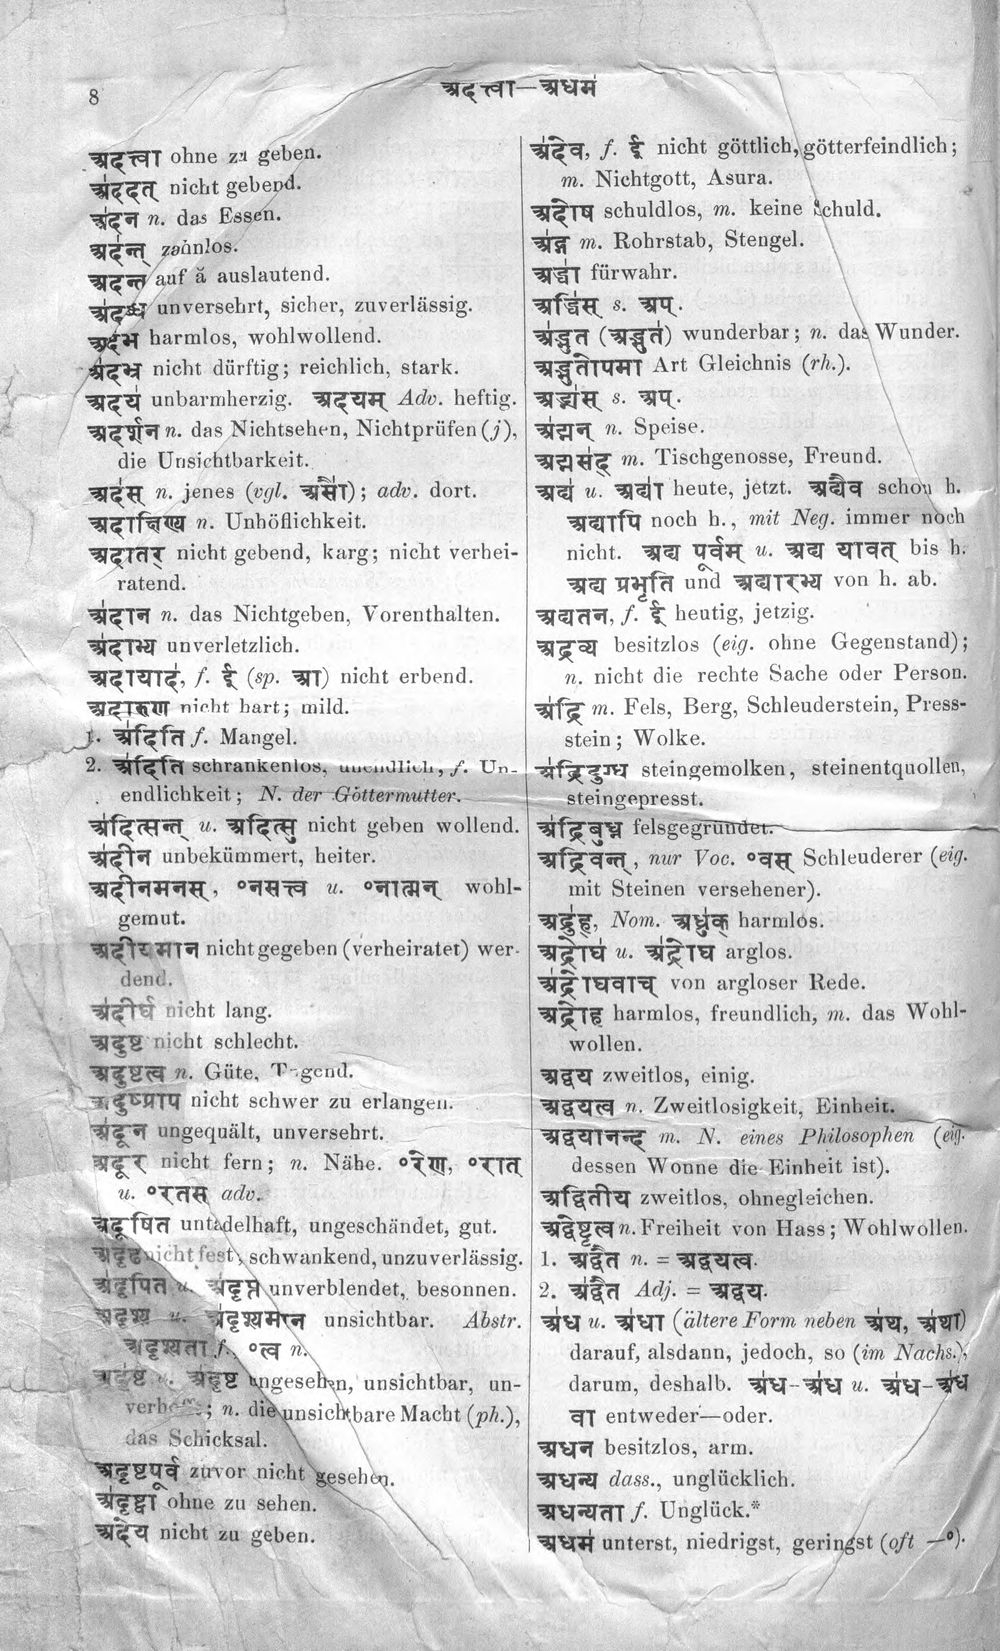 8
अदत्त्वा—अधम॑
अदत्त्वा ohne zu geben.
अ॑ददत् nicht gebend.
अ॑दन n. das Essen.
अद॑न्त् zahnlos.
अदन्त auf ă auslautend.
अ॑दब्ध unversehrt, sicher, zuverlässig.
अदम्भ harmlos, wohlwollend.
अ॑दभ्र nicht dürftig; reichlich, stark.
अदय॑ unbarmherzig. अदयम् Adv. heftig.
अदर्शन n. das Nichtsehen, Nichtprüfen (j),
die Unsichtbarkeit.
अद॑स् n. jenes (vgl. असौ॑); adv. dort.
अदाक्षिण्य n. Unhöflichkeit.
अदातर् nicht gebend, karg; nicht verhei-
ratend.
अ॑दान n. das Nichtgeben, Vorenthalten.
अ॑दाभ्य unverletzlich.
अदायाद॑, f. ई (sp. आ) nicht erbend.
अदारुण nicht hart; mild.
1. अ॑दिति f. Mangel.
2. अ॑दिति schrankenlos, unendlich, f. Un-
endlichkeit; N. der Göttermutter.
अ॑दित्सन्त् u. अदित्सु nicht geben wollend.
अ॑दीन unbekümmert, heiter.
अदीनमनस्, °नसत्त्व u. °नात्मन् wohl-
gemut.
अदीयमान nicht gegeben (verheiratet) wer-
dend.
अ॑दीर्घ nicht lang.
अदुष्ट nicht schlecht.
अदुष्टत्व n. Güte, Tugend.
अदुष्प्राप nicht schwer zu erlangen.
अ॑दून ungequält, unversehrt.
अदूर nicht fern; n. Nähe. °रेण, °रात्
u. °रतस् adv.
अदूषित untadelhaft, ungeschändet, gut.
अदृढ nicht fest, schwankend, unzuverlässig.
अ॑दृपित u. अ॑दृप्त unverblendet, besonnen.
अदृश्य u. अ॑दृश्यमान unsichtbar. Abstr.
अदृश्यता f., °त्व n.
अदृ॑ष्ट u. अ॑दृष्ट ungesehen, unsichtbar, un-
; n. die unsichtbare Macht (ph.),
das Schicksal.
अदृष्टपूर्व zuvor nicht gesehen.
अ॑दृष्ट्वा ohne zu sehen.
अदेय nicht zu geben.
अ॑देव, f. ई nicht göttlich, götterfeindlich;
m. Nichtgott, Asura.
अदोष schuldlos, m. keine Schuld.
अ॑द्ग m. Rohrstab, Stengel.
अद्धा॑ fürwahr.
अद्भि॑स् s. अप्.
अ॑द्भुत (अद्भुत॑) wunderbar; n. das Wunder.
अद्भुतोपमा Art Gleichnis (rh.).
अद्भ्य॑स् s. अप्.
अ॑द्मन् n. Speise.
अद्मस॑द् m. Tischgenosse, Freund.
अद्य॑ u. अद्या॑ heute, jetzt. अद्यैव schon h.
अद्यापि noch h., mit Neg. immer noch
nicht. अद्य पूर्वम् u. अद्य यावत् bis h.
अद्य प्रभृति und अद्यारभ्य von h. ab.
अद्यतन, f. ई heutig, jetzig.
अद्रव्य besitzlos (eig. ohne Gegenstand);
n. nicht die rechte Sache oder Person.
अ॑द्रि m. Fels, Berg, Schleuderstein, Press-
stein; Wolke.
अ॑द्रिदुग्ध steingemolken, steinentquollen,
steingepresst.
अ॑द्रिबुध्न felsgegründet.
अद्रिवन्त्, nur Voc. °वस् Schleuderer (eig.
mit Steinen versehener).
अद्रु॑ह्, Nom. अध्रु॑क् harmlos.
अद्रोघ॑ u. अ॑द्रोघ arglos.
अ॑द्रोघवाच् von argloser Rede.
अद्रोह harmlos, freundlich, m. das Wohl-
wollen.
अद्वय zweitlos, einig.
अद्वयत्व n. Zweitlosigkeit, Einheit.
अद्वयानन्द m. N. eines Philosophen (eig.
dessen Wonne die Einheit ist).
अद्वितीय zweitlos, ohnegleichen.
अद्वेष्टृत्व n. Freiheit von Hass; Wohlwollen.
1. अद्वैत n. = अद्वयत्व.
2. अ॑द्वैत Adj. = अद्वय.
अ॑ध u. अ॑धा (ältere Form neben अ॑थ, अ॑था)
darauf, alsdann, jedoch, so (im Nachs.),
darum, deshalb. अ॑ध-अ॑ध u. अ॑ध-अ॑ध
वा entweder—oder.
अधन besitzlos, arm.
अधन्य dass., unglücklich.
अधन्यता f. Unglück.*
अधम॑ unterst, niedrigst, geringst (oft —°).